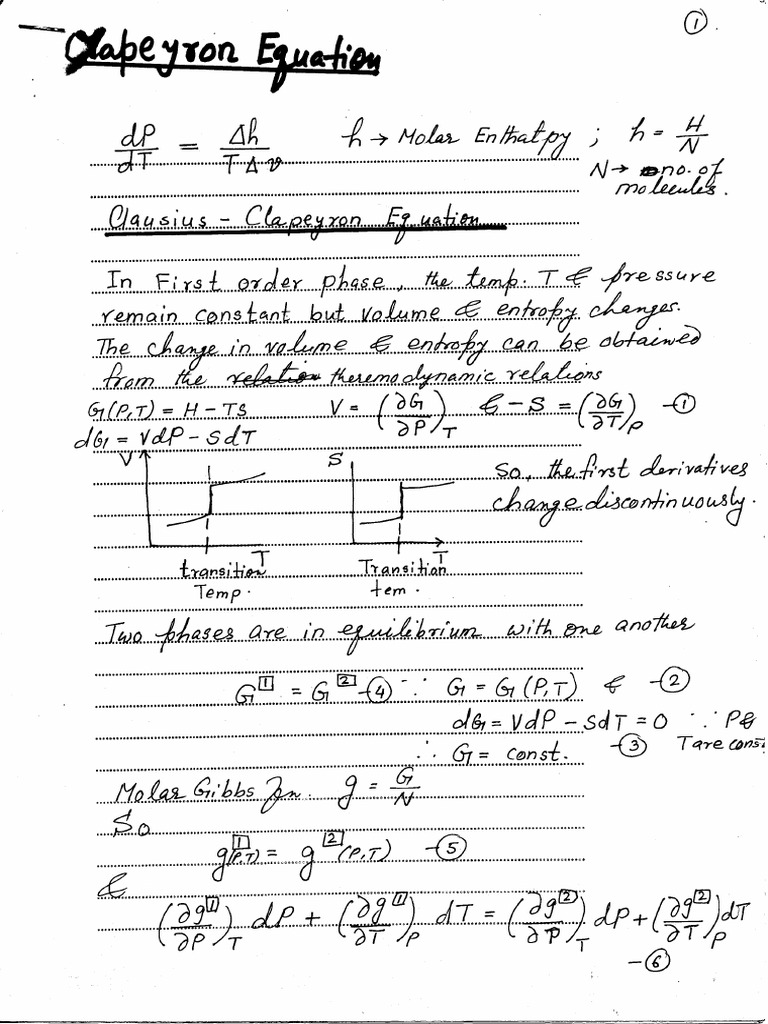 ①
Clapeyron Equation
dP/dT = Δh/TΔv   h → Molar Enthalpy ; h = H/N
N → no. of molecules.
Clausius - Clapeyron Equation
In First order phase, the temp. T & pressure
remain constant but volume & entropy changes.
The change in volume & entropy can be obtained
from the relation thermodynamic relations
G(P,T) = H - TS   V = (∂G/∂P)_T   & -S = (∂G/∂T)_P -①
dG = VdP - SdT
V   S   So, the first derivatives
change discontinuously.
T   T
transition   Transition
Temp.   tem.
Two phases are in equilibrium with one another
G^[1] = G^[2] -④ ∵ G = G(P,T) & -②
dG = VdP - SdT = 0 ∵ P &
∴ G = const. -③ T are const
Molar Gibbs fn. g = G/N
So
g^[1](P,T) = g^[2](P,T) -⑤
&
(∂g^[1]/∂P)_T dP + (∂g^[1]/∂T)_P dT = (∂g^[2]/∂P)_T dP + (∂g^[2]/∂T)_P dT
-⑥